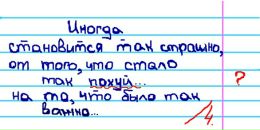 Иногда
становится так страшно,
от того, что стало
так похуй...
?
на то, что было так
важно...
4